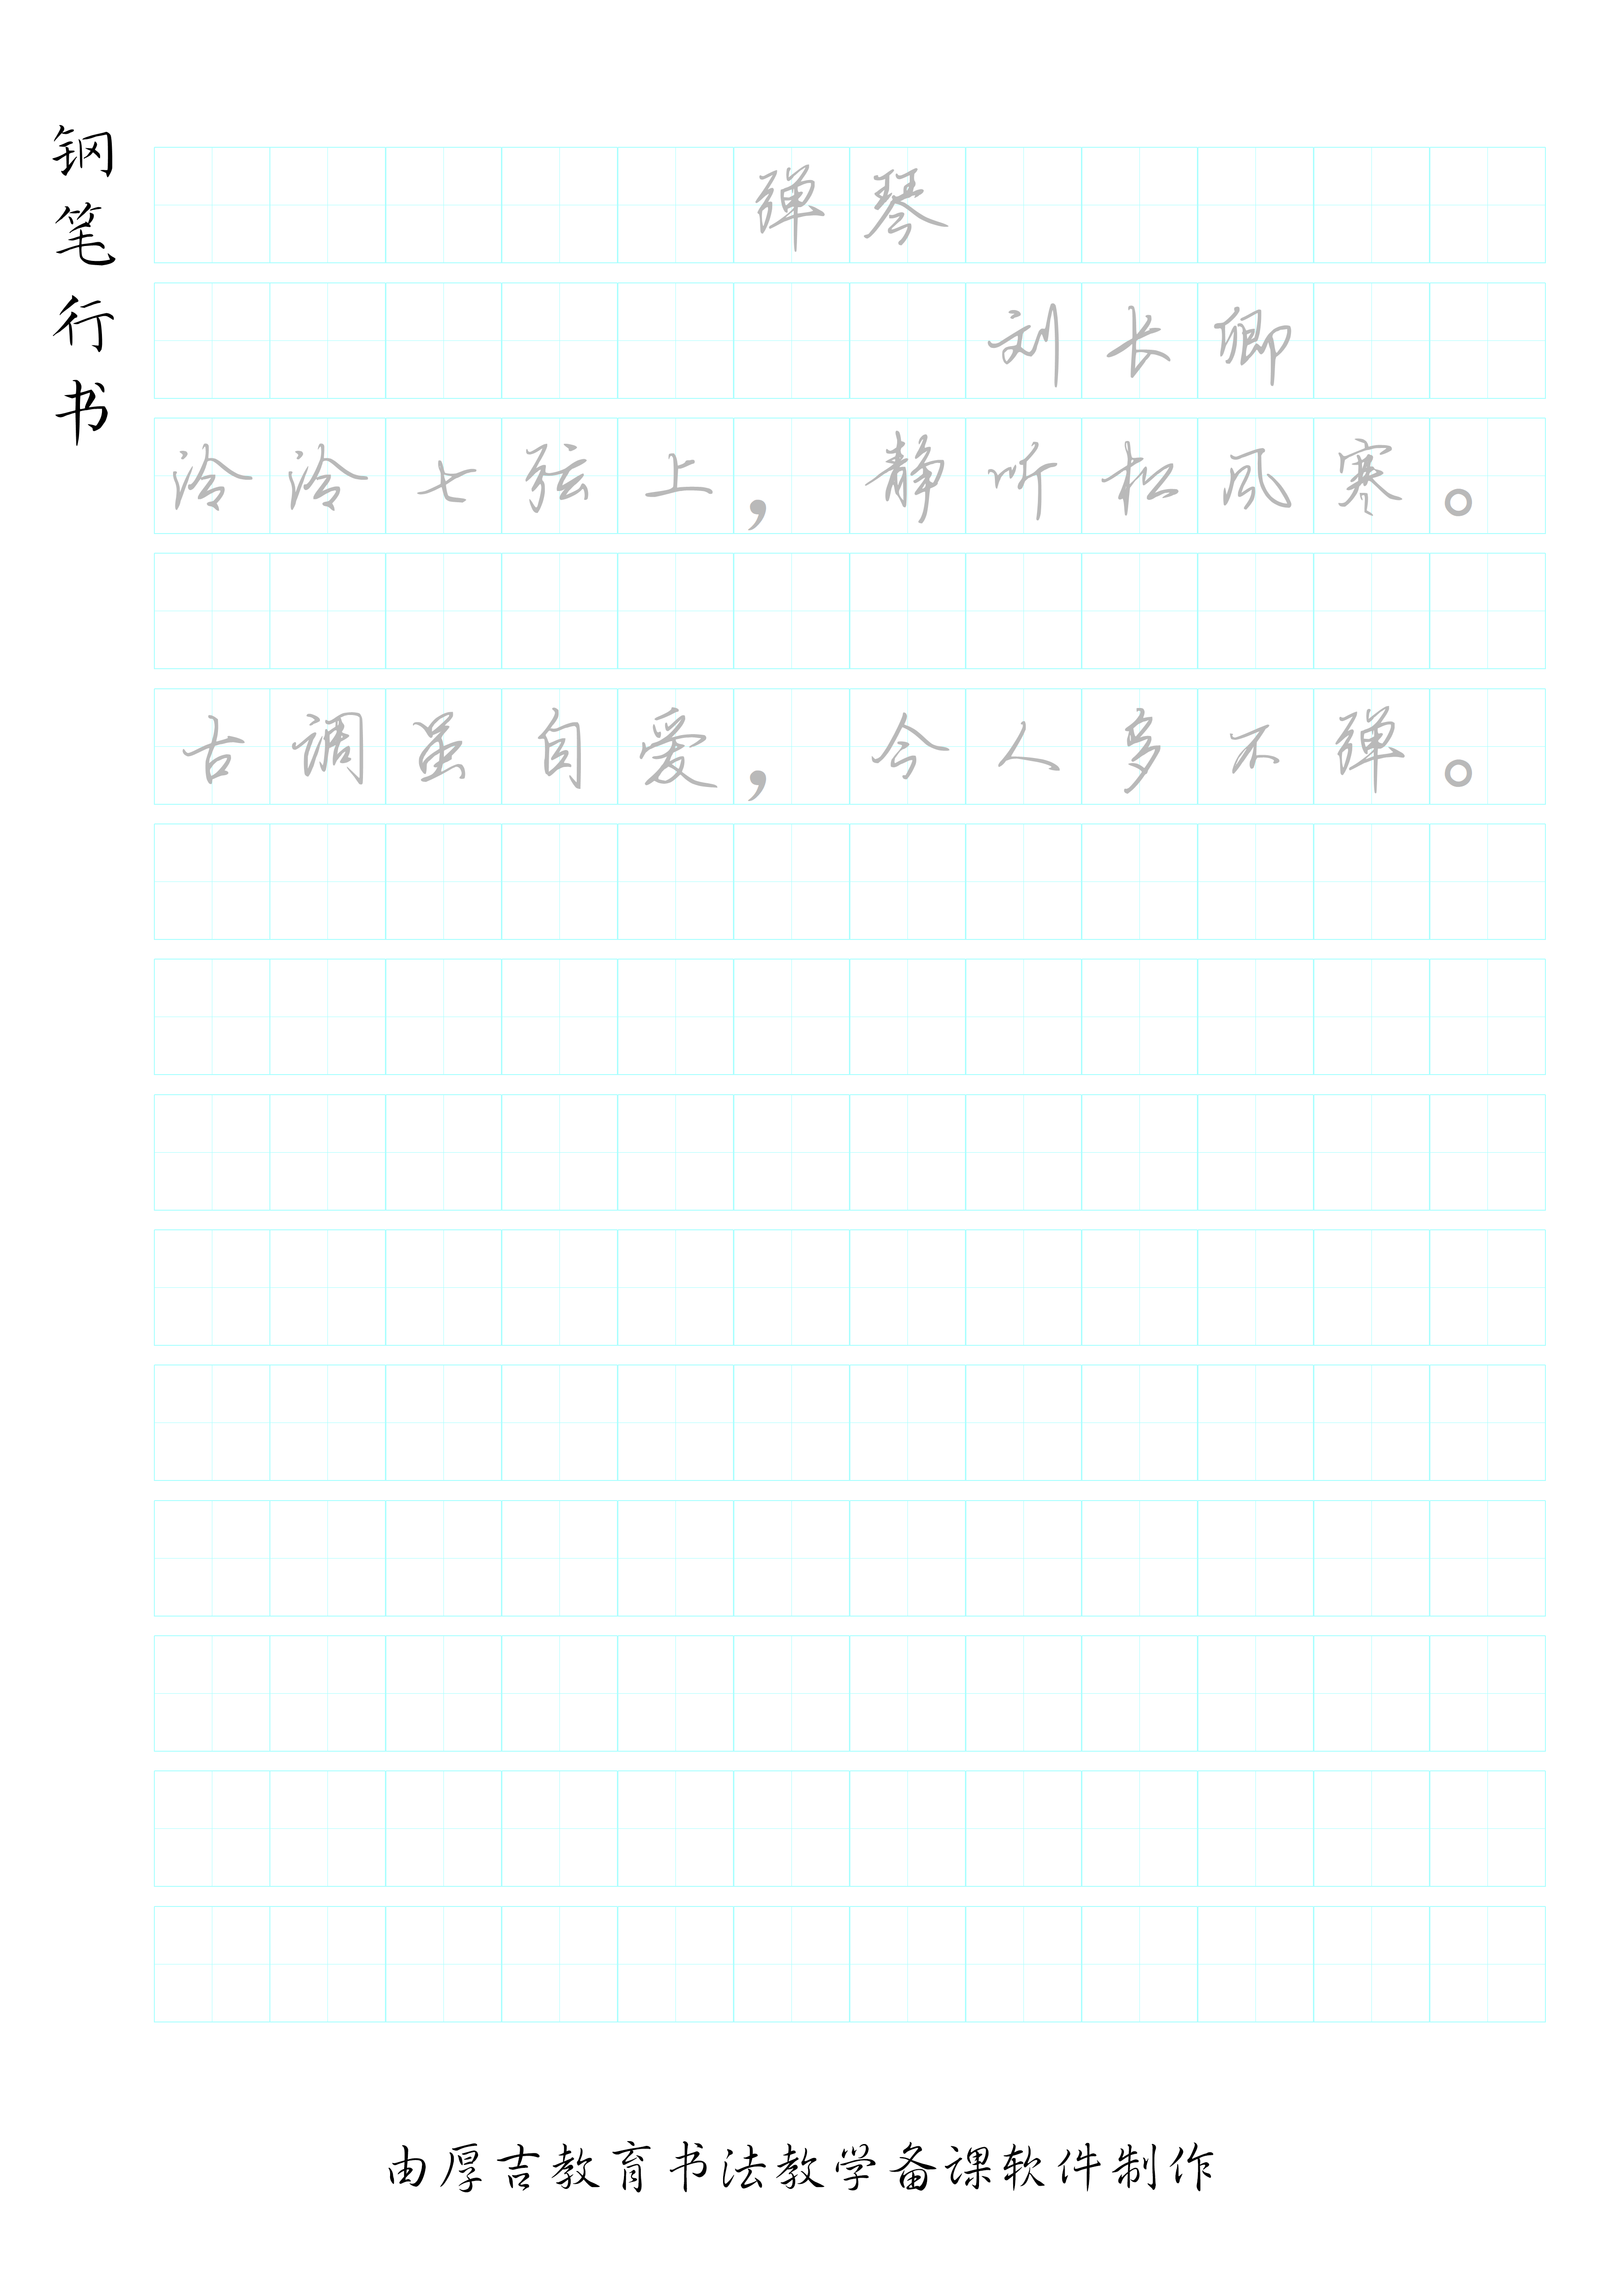 钢笔行书
弹琴
刘长卿
泠泠七弦上，静听松风寒。
古调虽自爱，今人多不弹。
由厚吉教育书法教学备课软件制作